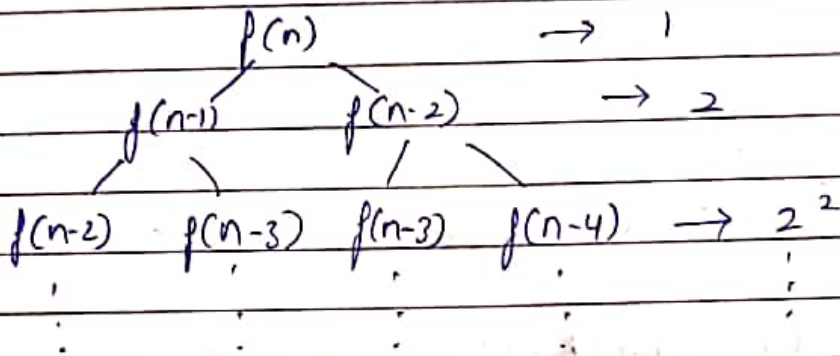 f(n) → 1
f(n-1) f(n-2) → 2
f(n-2) f(n-3) f(n-3) f(n-4) → 2²